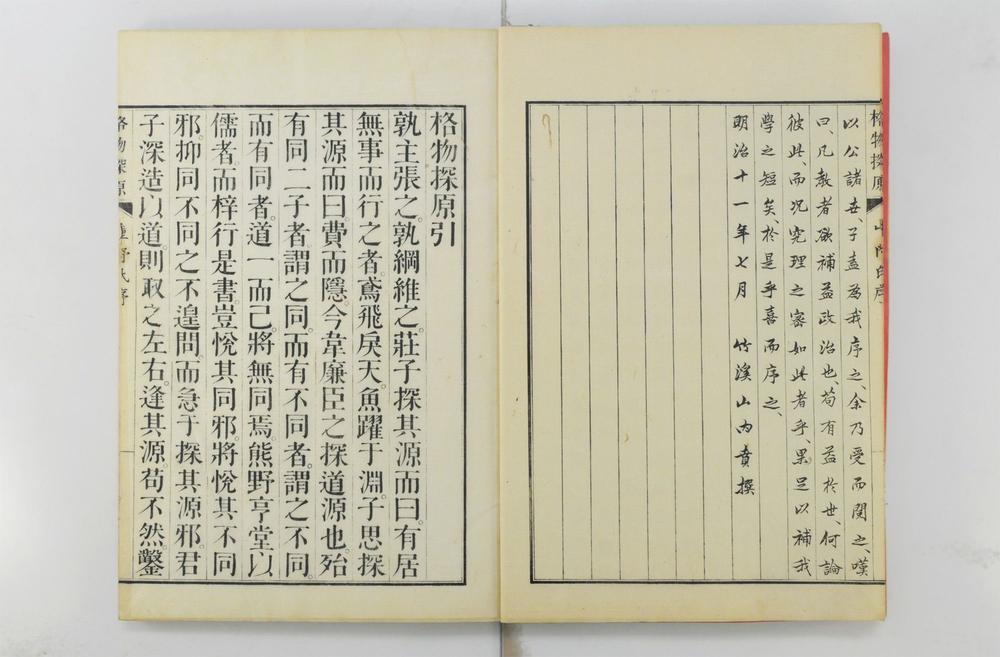 以公諸世、子盍為我序之、余乃受而閱之、嘆
曰、凡教者欲補益政治也、苟有益於世、何論
彼此、而况究理之密如此者乎、果足以補我
學之短矣、於是乎喜而序之、
明治十一年七月　竹溪山內賁撰
格物探原
格物探原引
孰主張之。孰綱維之。莊子探其源而曰。有居
無事而行之者。鳶飛戾天。魚躍于淵。子思探
其源而曰。費而隱。今韋廉臣之探道源也。殆
有同二子者。謂之同。而有不同者。謂之不同。
而有同者。道一而已。將無同焉。熊野亨堂以
儒者。而梓行是書。豈悅其同邪。將悅其不同
邪。抑同不同之不遑問。而急于探其源邪。君
子深造以道。則取之左右。逢其源苟不然鑿
格物探原